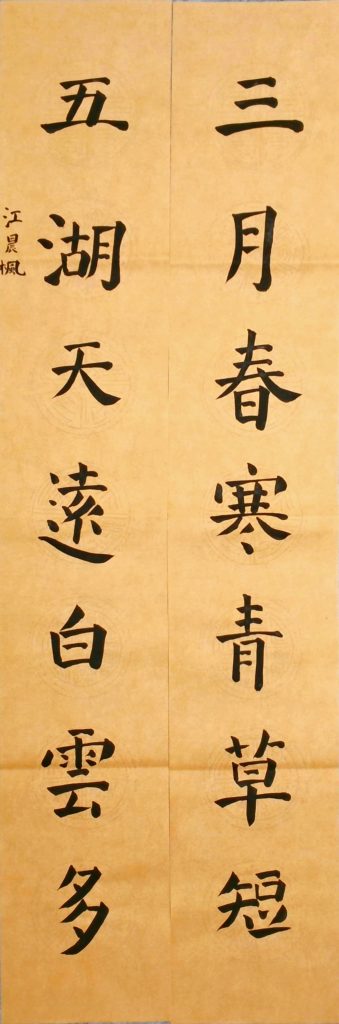 三月春寒青草短
五湖天遠白雲多
江晨楓